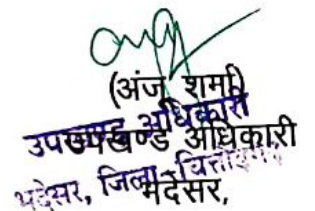 (अंजू शर्मा)
उपखण्ड अधिकारी
उपखण्ड अधिकारी
भदेसर, जिला-चित्तौड़गढ़
भदेसर,